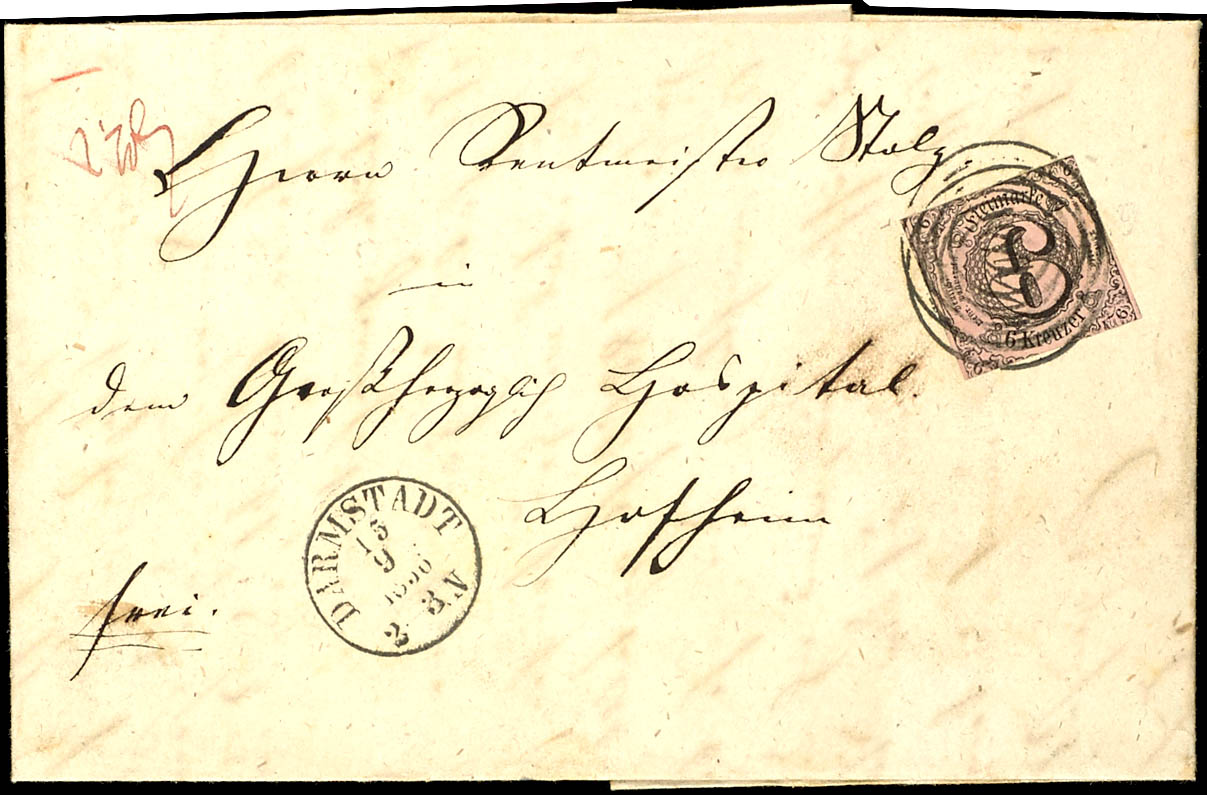 Herrn Rentmeister Stolz.
in
dem Großherzoglich Hospital.
Hofheim
frei.
DARMSTADT
18
9
2 3 N
Freimarke
6
6 Kreuzer